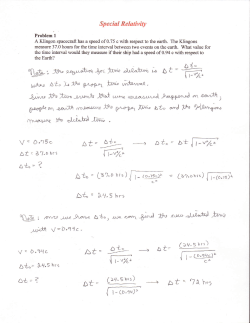 Special Relativity
Problem 1
A Klingon spacecraft has a speed of 0.75 c with respect to the earth. The Klingons
measure 37.0 hours for the time interval between two events on the earth. What value for
the time interval would they measure if their ship had a speed of 0.94 c with respect to
the Earth?
Note: the equation for time dilation is Δt = Δt₀ / √(1-v²/c²)
where Δt₀ is the proper time interval.
Since the two events that were measured happened on earth,
people on earth measure the proper time Δt₀ and the Klingons
measure the dilated time.
V = 0.75c Δt = Δt₀ / √(1-v²/c²) → Δt₀ = Δt √(1-v²/c²)
Δt = 37.0 hrs
Δt₀ = ? Δt₀ = (37.0 hrs) √(1-(0.75c)²/c²) = (37.0 hrs) √(1-(0.75)²)
Δt₀ = 24.5 hrs
Note: once we have Δt₀, we can find the new dilated time
with v=0.94c.
V = 0.94c Δt = Δt₀ / √(1-v²/c²) → Δt = (24.5 hrs) / √(1-(0.94c)²/c²)
Δt₀ = 24.5 hrs
Δt = ? Δt = (24.5 hrs) / √(1-(0.94)²) → Δt = 72 hrs